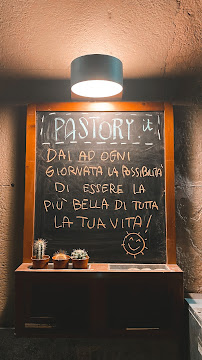 PASTORY.it
DAI AD OGNI
GIORNATA LA POSSIBILITÀ
DI ESSERE LA
PIÙ BELLA DI TUTTA
LA TUA VITA!